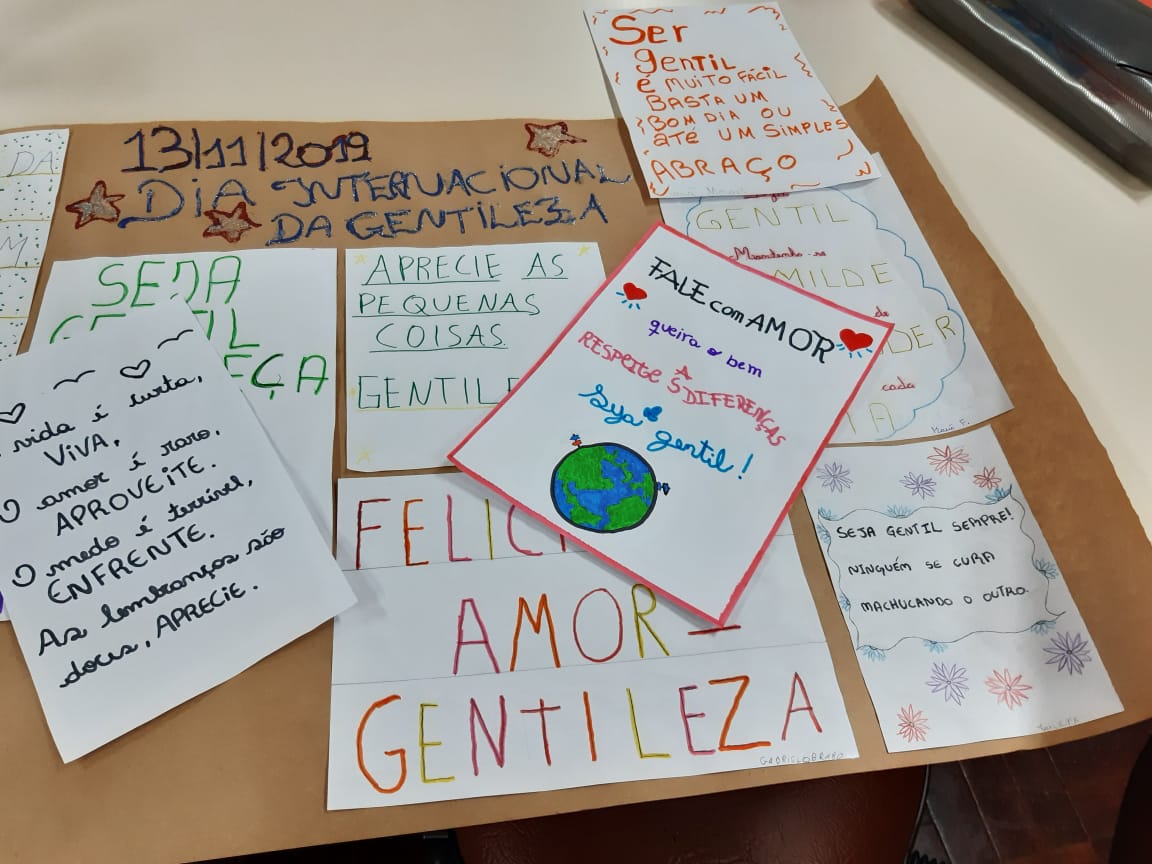 DA
M
13/11/2019
DIA INTERNACIONAL
DA GENTILEZA
Ser
gentil
é MUITO FÁCIL
BASTA UM
BOM DIA OU
ATÉ UM SIMPLES
ABRAÇO
GENTIL
Mantenha-se
MILDE
de
DER
cada
A
SEJA
APRECIE AS
PEQUENAS
COISAS
GENTILE
FALE com AMOR
queira o bem
RESPEITE AS DIFERENÇAS
Seja gentil!
vida é curta,
VIVA,
O amor é raro,
APROVEITE.
O medo é terrível,
ENFRENTE.
As lembranças são
doces, APRECIE.
FELICI
AMOR
GENTILEZA
SEJA GENTIL SEMPRE!
NINGUÉM SE CURA
MACHUCANDO O OUTRO.